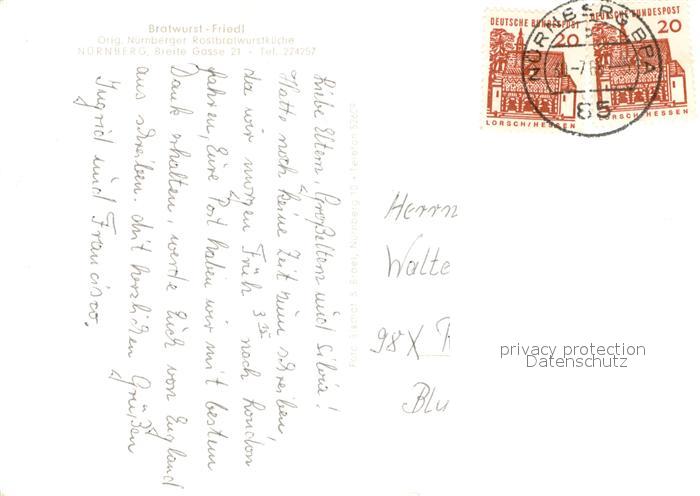 Bratwurst-Friedl
Orig. Nürnberger Rostbratwurstküche
NÜRNBERG, Breite Gasse 21 - Tel. 274257
Liebe Eltern, Großeltern und Silvia!
Hatte noch keine Zeit zum schreiben,
da wir morgen Früh 3 15 nach London
fahren, Eure Post haben wir mit bestem
Dank erhalten, werde Euch von England
aus schreiben. Mit herzlichen Grüßen
Ingrid und Francisco.
DEUTSCHE BUNDESPOST DEUTSCHE BUNDESPOST
20 20
LORSCH/HESSEN LORSCH/HESSEN
NÜRNBERG BPA
85
Herrn
Walte
98X
Blu
privacy protection
Datenschutz